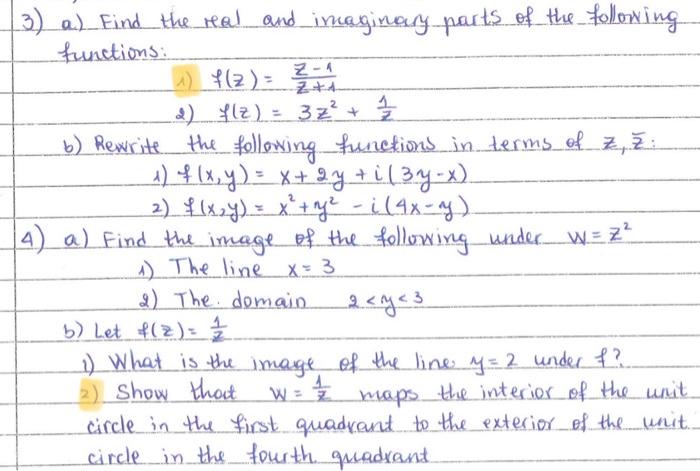 3) a) Find the real and imaginary parts of the following
functions:
1) f(z) = (z-1)/(z+1)
2) f(z) = 3z² + 1/z
b) Rewrite the following functions in terms of z, z̄:
1) f(x,y) = x + 2y + i(3y-x)
2) f(x,y) = x² + y² - i(4x-y)
4) a) Find the image of the following under w = z²
1) The line x = 3
2) The domain 2 < y < 3
b) Let f(z) = 1/z
1) What is the image of the line y = 2 under f?
2) Show that w = 1/z maps the interior of the unit
circle in the first quadrant to the exterior of the unit
circle in the fourth quadrant